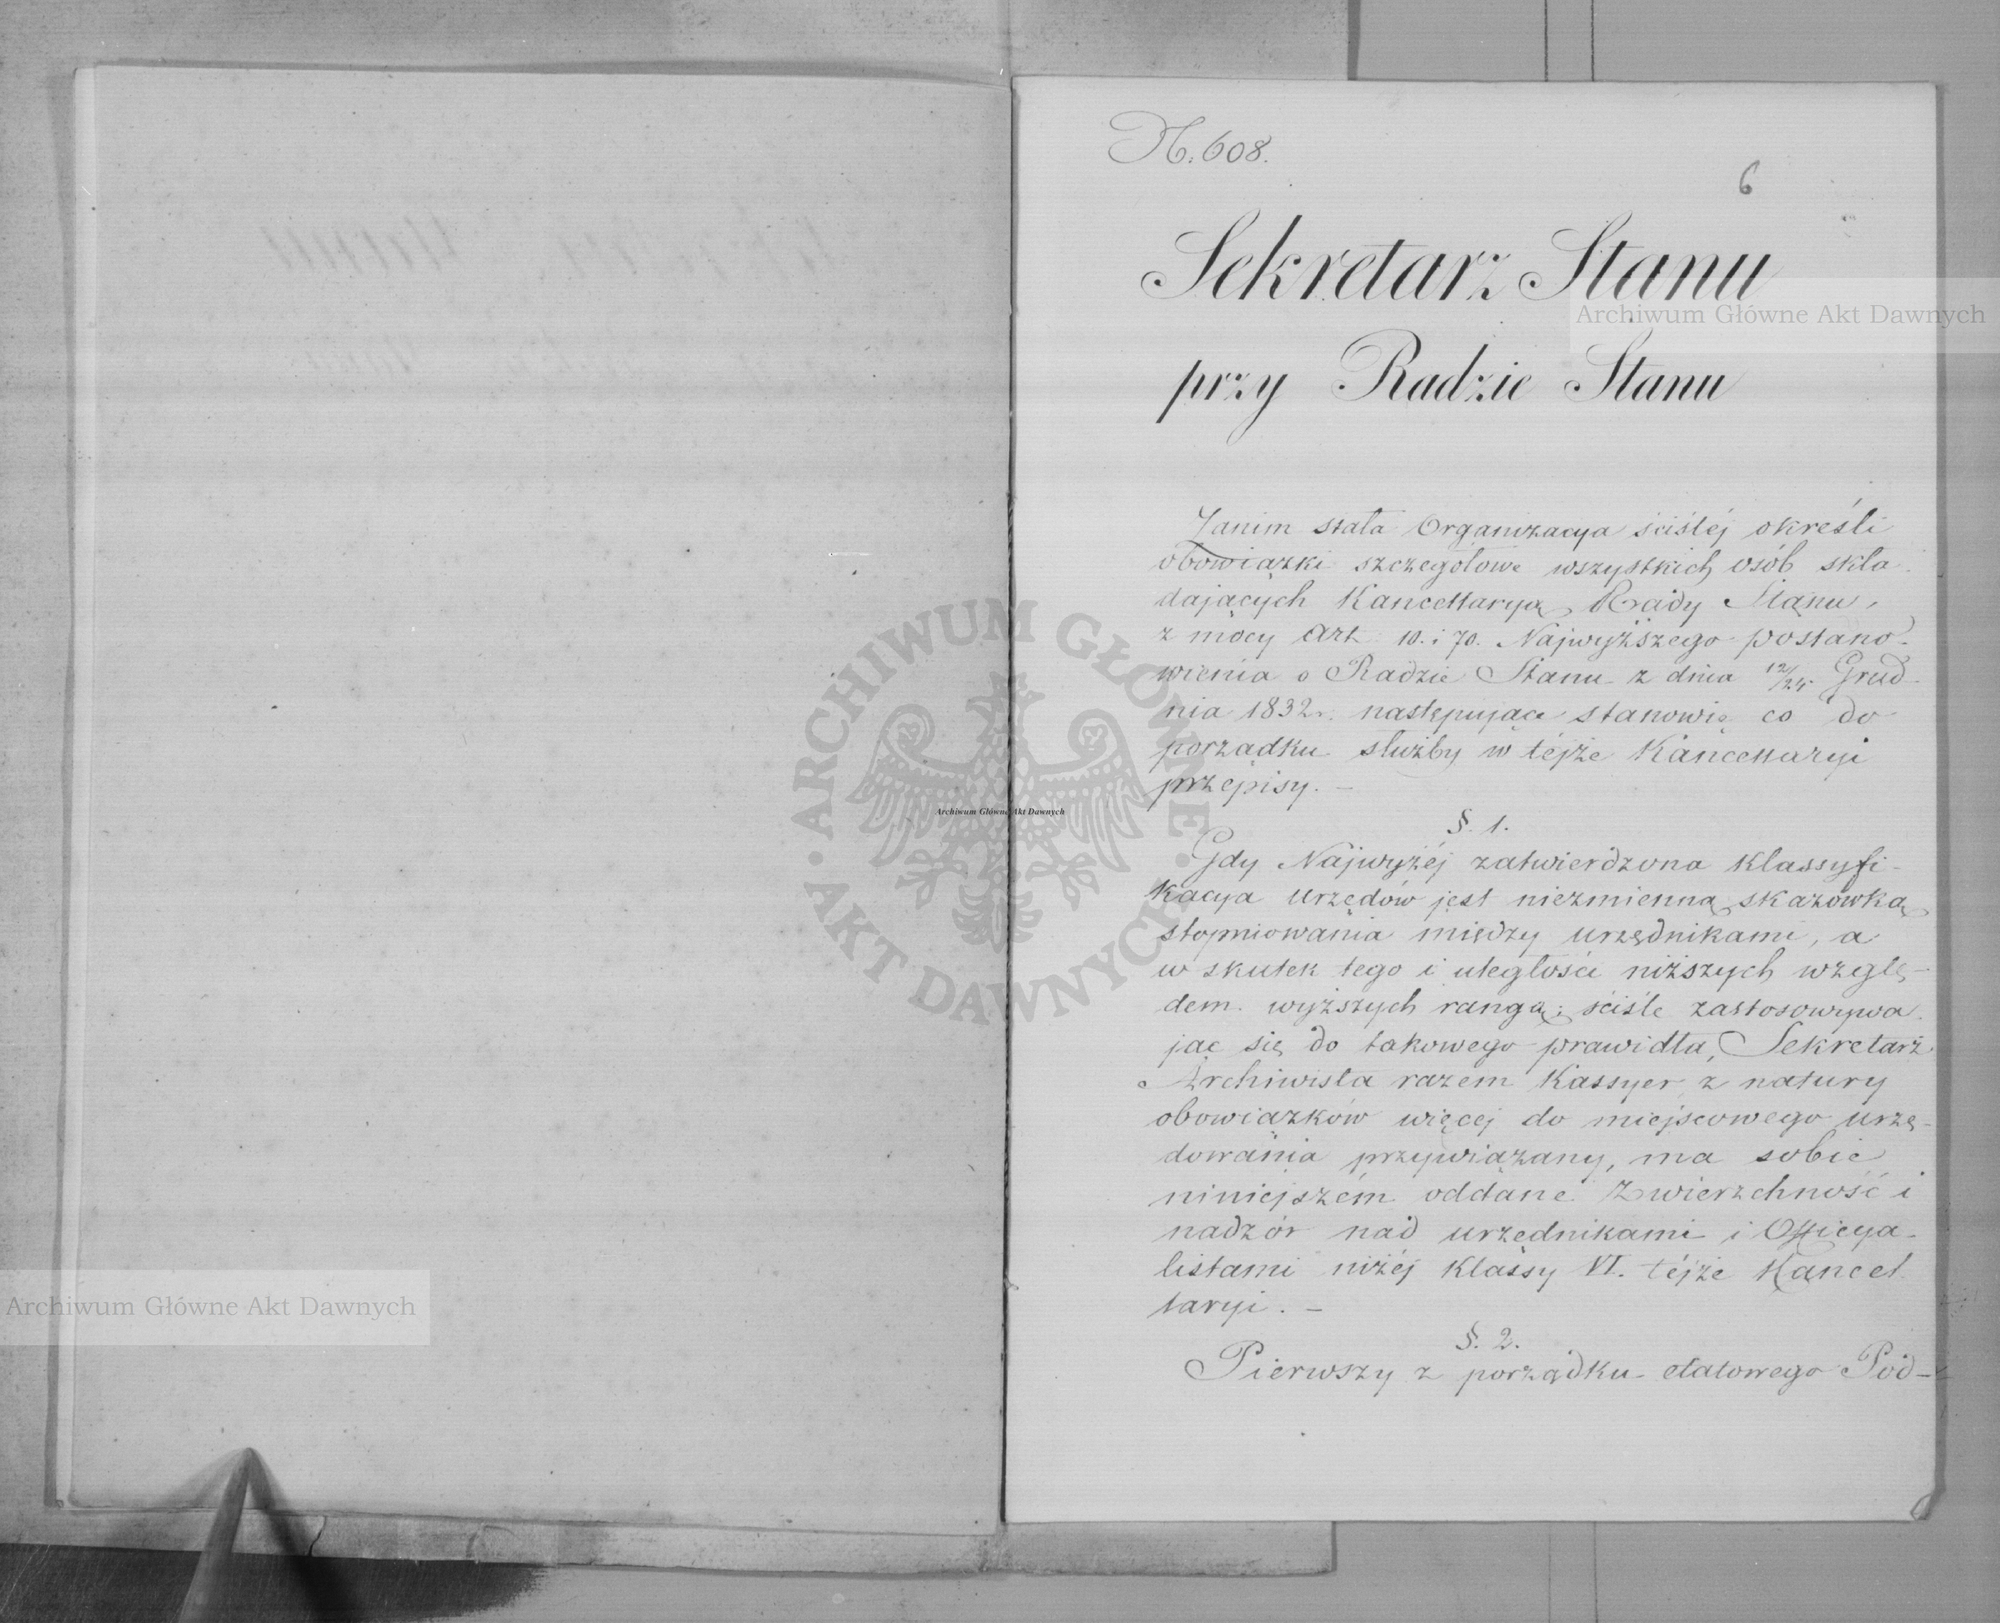 N. 608.
6
Sekretarz Stanu
przy Radzie Stanu
Zanim stała Organizacya ściśléj określi
obowiązki szczegółowe wszystkich osób skła
dających Kancellaryą Rady Stanu,
z mocy art. 10. i 70. Najwyższego postano-
wienia o Radzie Stanu z dnia 12/24 Grud
nia 1832 r. następujące stanowię co do
porządku służby w téjże Kancellaryi
przepisy. –
§. 1.
Gdy Najwyżéj zatwierdzona klassyfi-
kacya urzędów jest niezmienną skazówką
stopniowania między urzędnikami, a
w skutek tego i uległości niższych wzglę-
dem wyższych rangą; ściśle zastosowywa
jąc się do takowego prawidła, Sekretarz
Archiwista razem Kassyer z natury
obowiązków więcej do miejscowego urzę-
dowania przywiązany, ma sobie
niniejszém oddane Zwierzchność i
nadzór nad urzędnikami i Officya-
listami niżéj Klassy VI. téjże Kancel
laryi. –
§. 2.
Pierwszy z porządku etatowego Pod-
Archiwum Główne Akt Dawnych
Archiwum Główne Akt Dawnych
Archiwum Główne Akt Dawnych
ARCHIWUM GŁÓWNE · AKT DAWNYCH ·